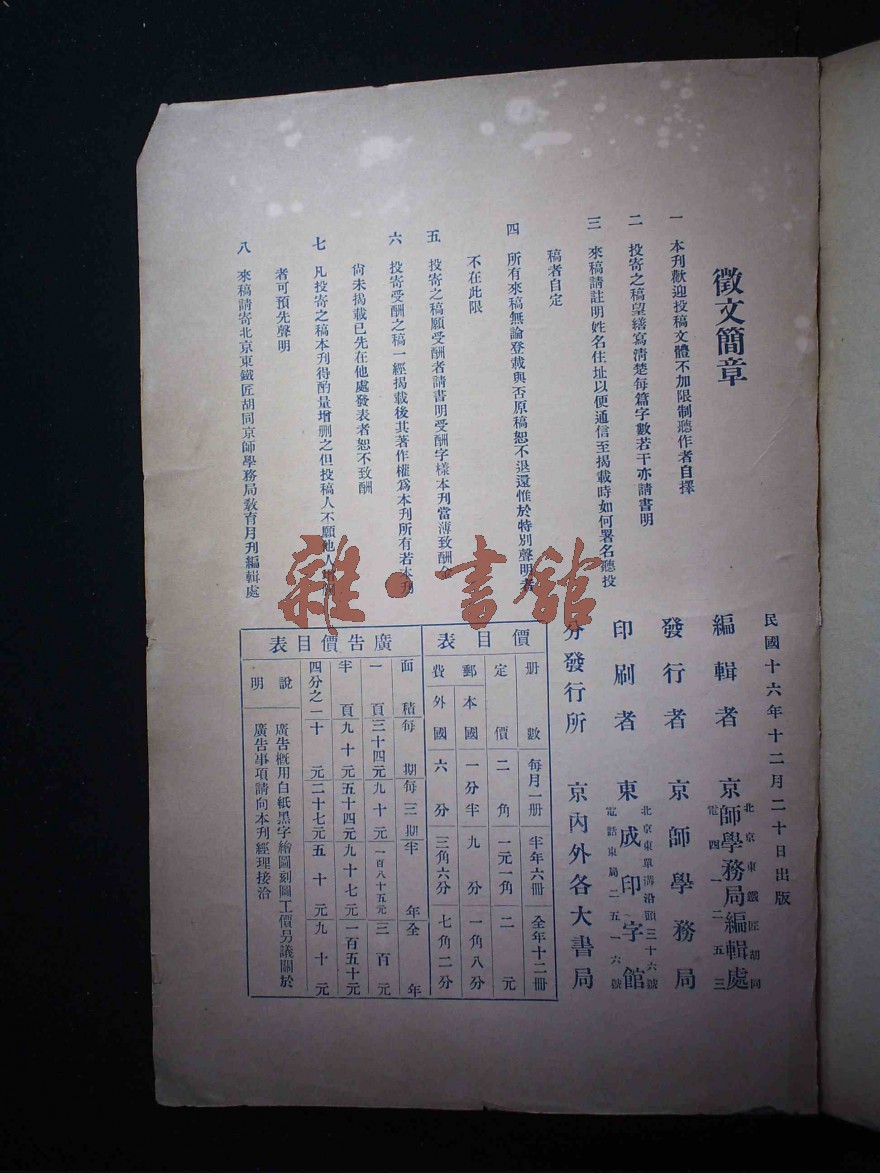 徵文簡章
一 本刊歡迎投稿文體不加限制聽作者自擇
二 投寄之稿望繕寫清楚每篇字數若干亦請書明
三 來稿請註明姓名住址以便通信至揭載時如何署名聽投
稿者自定
四 所有來稿無論登載與否原稿恕不退還惟於特別聲明者
不在此限
五 投寄之稿願受酬者請書明受酬字樣本刊當薄致酬金
六 投寄受酬之稿一經揭載後其著作權爲本刊所有若本刊
尙未揭載已先在他處發表者恕不致酬
七 凡投寄之稿本刊得酌量增删之但投稿人不願他人增删
者可預先聲明
八 來稿請寄北京東鐵匠胡同京師學務局敎育月刊編輯處
民國十六年十二月二十日出版
編輯者 京師學務局編輯處
北京東鐵匠胡同
電四一二五三
發行者 京師學務局
印刷者 東成印字館
北京東單溝沿頭三十六號
電話東局二五一六號
分發行所 京內外各大書局
價目表
册數 每月一册 半年六册 全年十二册
定價 二角 一元一角 二元
郵費 本國 一分半 九分 一角八分
外國 六分 三角六分 七角二分
廣告價目表
面積 每期 每三期 半年 全年
一頁 三十四元 九十元 一百八十五元 三百元
半頁 九十元 五十四元 九十七元 一百五十元
四分之一 十元 二十七元 五十元 九十元
說明
廣告概用白紙黑字繪圖刻圖工價另議關於
廣告事項請向本刊經理接洽
雜·書館